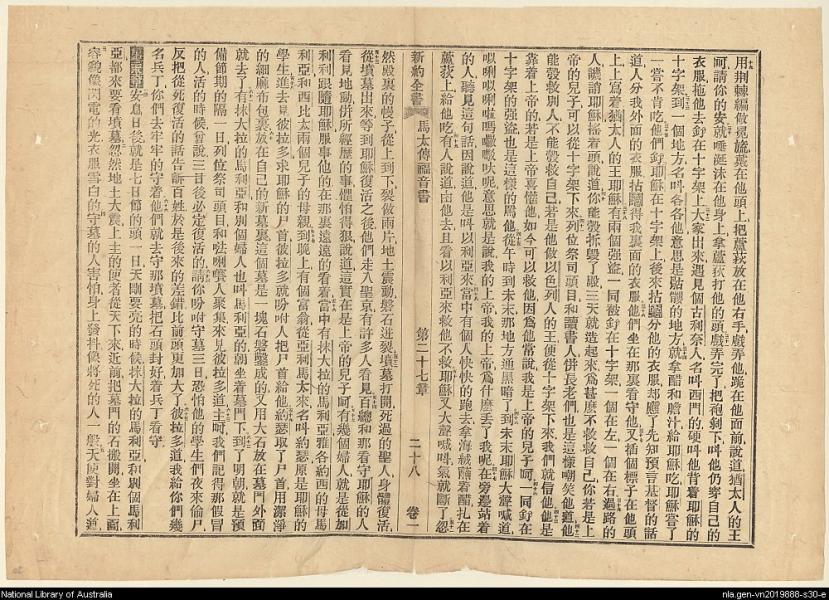 用荊棘編做冕旒戴在他頭上把蘆荻放在他右手戲弄他跪在他面前說道猶太人的王
呵請你的安就唾涎沫在他身上拿蘆荻打他的頭戲弄完了把袍剝下叫他仍穿自己的
衣服拖他去釘在十字架上大家出來遇見個古利奈人名叫西門的硬叫他背着耶穌的
十字架到一個地方名叫各各他意思是髑髏的地方就拿醋和膽汁給耶穌吃耶穌嘗了
一嘗不肯吃他們釘耶穌在十字架上後來拈鬮分他的衣服却應了先知預言基督的話
道人分我外面的衣服拈鬮得我裏面的衣服他們坐在那裏看守他又插個標子在他頭
上上寫着猶太人的王耶穌有兩個強盜一同釘在十字架一個在左一個在右過路的
人譏誚耶穌搖着頭說道你能彀拆毀了殿三天就造起來爲甚麼不救救自己你若是上
帝的兒子可以從十字架下來列位祭司頭目和讀書人併長老們也是這樣嘲笑他道他
能彀救別人不能彀救自己若是他做以色列人的王便從十字架下來我們就信他他是
靠着上帝的若是上帝喜懽他如今可以救他因爲他常說我是上帝的兒子呵一同釘在
十字架的強盜也是這樣的罵他從午時到未末那地方通黑暗了到未末耶穌大聲喊道
以唎以唎啦嗎呢意思就是說我的上帝我的上帝爲什麼丟了我呢在旁邊站着
的人聽見這句話因說道他是叫以利亞來當中有個人快快的跑去拿海絨蘸着醋扎在
蘆荻上給他吃有人說道由他去且看以利亞來救他不救耶穌又大聲喊叫氣就斷了忽
新約全書 馬太傳福音書 第二十七章 二十八 卷一
然殿裏的幔子從上到下裂做兩片地土震動磐石迸裂墳墓打開死過的聖人身體復活
從墳墓出來等到耶穌復活之後他們走入聖京有許多人看見百總和那看守耶穌的人
看見地動併所經歷的事懼怕得狠說道這實在是上帝的兒子呵有幾個婦人就是從加
利利跟隨耶穌服事他的在那裏遠遠的看着當中有抹大拉的馬利亞雅各約西的母馬
利亞和西比太兩個兒子的母親到晚上有個富翁從亞利馬太來名叫約瑟原是耶穌的
學生進去見彼拉多求耶穌的尸首彼拉多就吩咐人把尸首給他約瑟取了尸首用潔淨
的細麻布包裹放在自己的新墓裏這個墓是一塊石磐鑿成的又用大石放在墓門外面
就去了有抹大拉的馬利亞和別個婦人也叫馬利亞的朝坐着墓門下到了明朝就是預
備節期的隔一日列位祭司頭目和唎㘔人聚集來見彼拉多道主呵我們記得那假冒
的人活的時候曾說三日後必定復活的請你吩咐守墓三日恐怕他的學生們夜來偷尸
反把從死復活的話告訴百姓於是後來的差錯比前頭更加大了彼拉多道我給你們幾
名兵丁你們去牢牢的守着他們就去守那墳墓把石頭封好着兵丁看守
安息日後就是七日節的頭一日天剛要亮的時候抹大拉的馬利亞和別個馬利
亞都來要看墳墓忽然地土大震上主的使者從天下來近前把墓門的石搬開坐在上面
容貌像閃電的光衣服雪白的守墓的人害怕身上發抖像將死的人一般天使對婦人道
National Library of Australia
nla.gen-vn2019888-s30-e